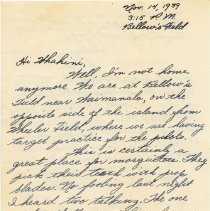 Nov. 14, 1939
3:15 P.M.
Bellow's Field
Hi
Well, I'm not home
anymore. We are at Bellow's
Field near Waimanalo, on the
opposite side of the island from
Wheeler Field, where we are having
target practice for the pilots.
This is certainly a
great place for mosquitoes. They
pick their teeth with prop
blades. No fooling last night
I heard two talking. The one